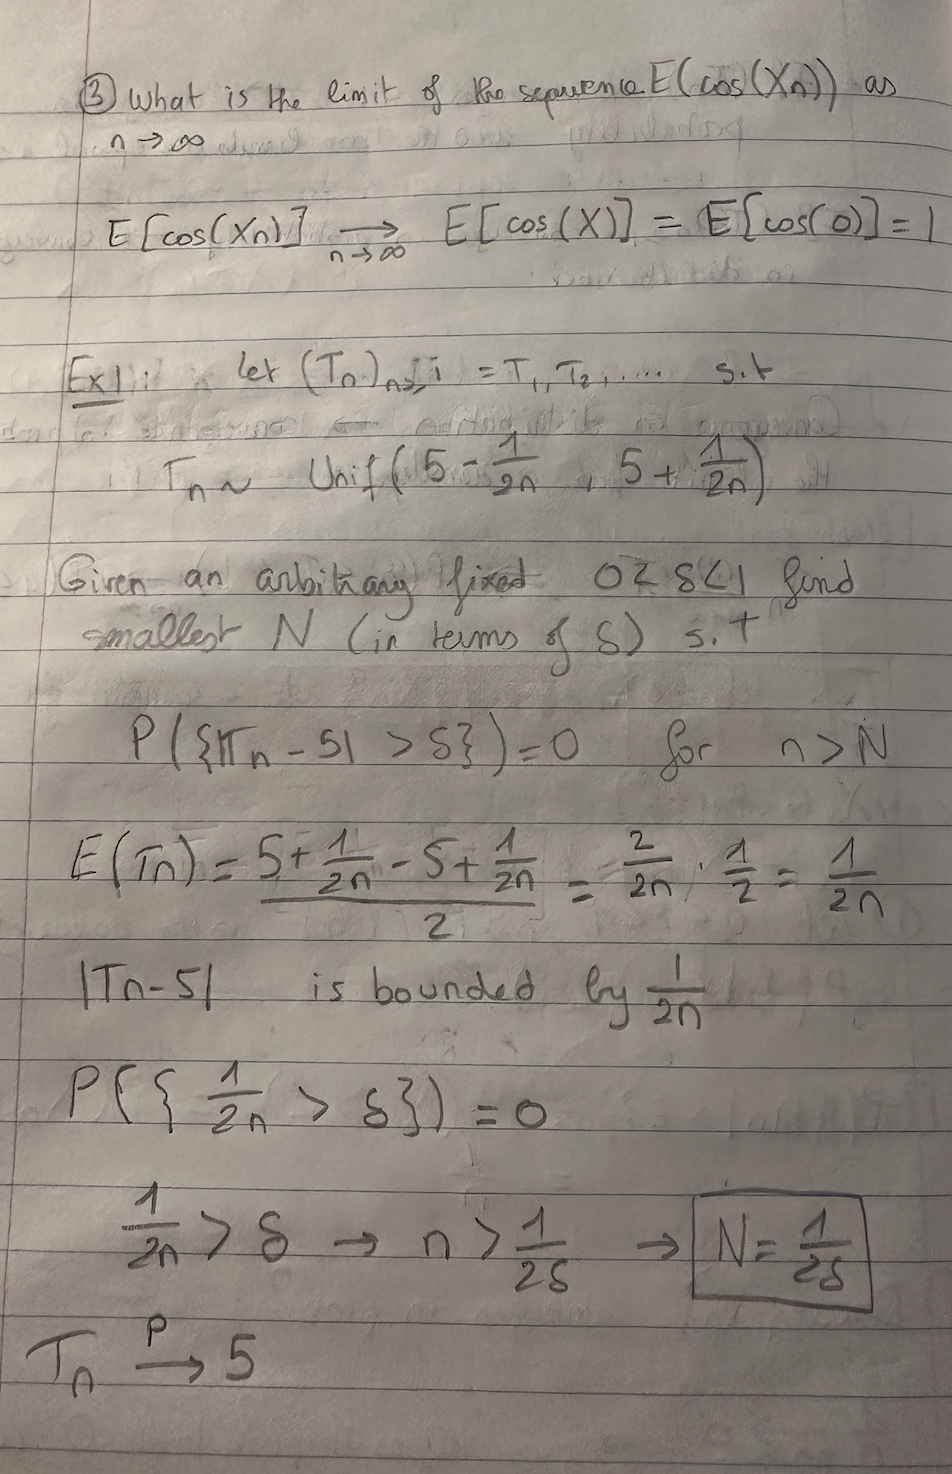 ③ What is the limit of the sequence E(cos(Xn)) as
n → ∞
E[cos(Xn)] →n→∞ E[cos(X)] = E[cos(0)] = 1
Ex1: let (Tn)n≥1 = T1, T2, .... s.t
Tn ~ Unif(5 - 1/2n , 5 + 1/2n)
Given an arbitrary fixed 0<δ<1 find
smallest N (in terms of δ) s.t
P({|Tn - 5| > δ}) = 0 for n > N
E(Tn) = (5 + 1/2n - 5 + 1/2n)/2 = 2/2n · 1/2 = 1/2n
|Tn - 5| is bounded by 1/2n
P({ 1/2n > δ}) = 0
1/2n > δ → n > 1/2δ → N = 1/2δ
Tn →P 5